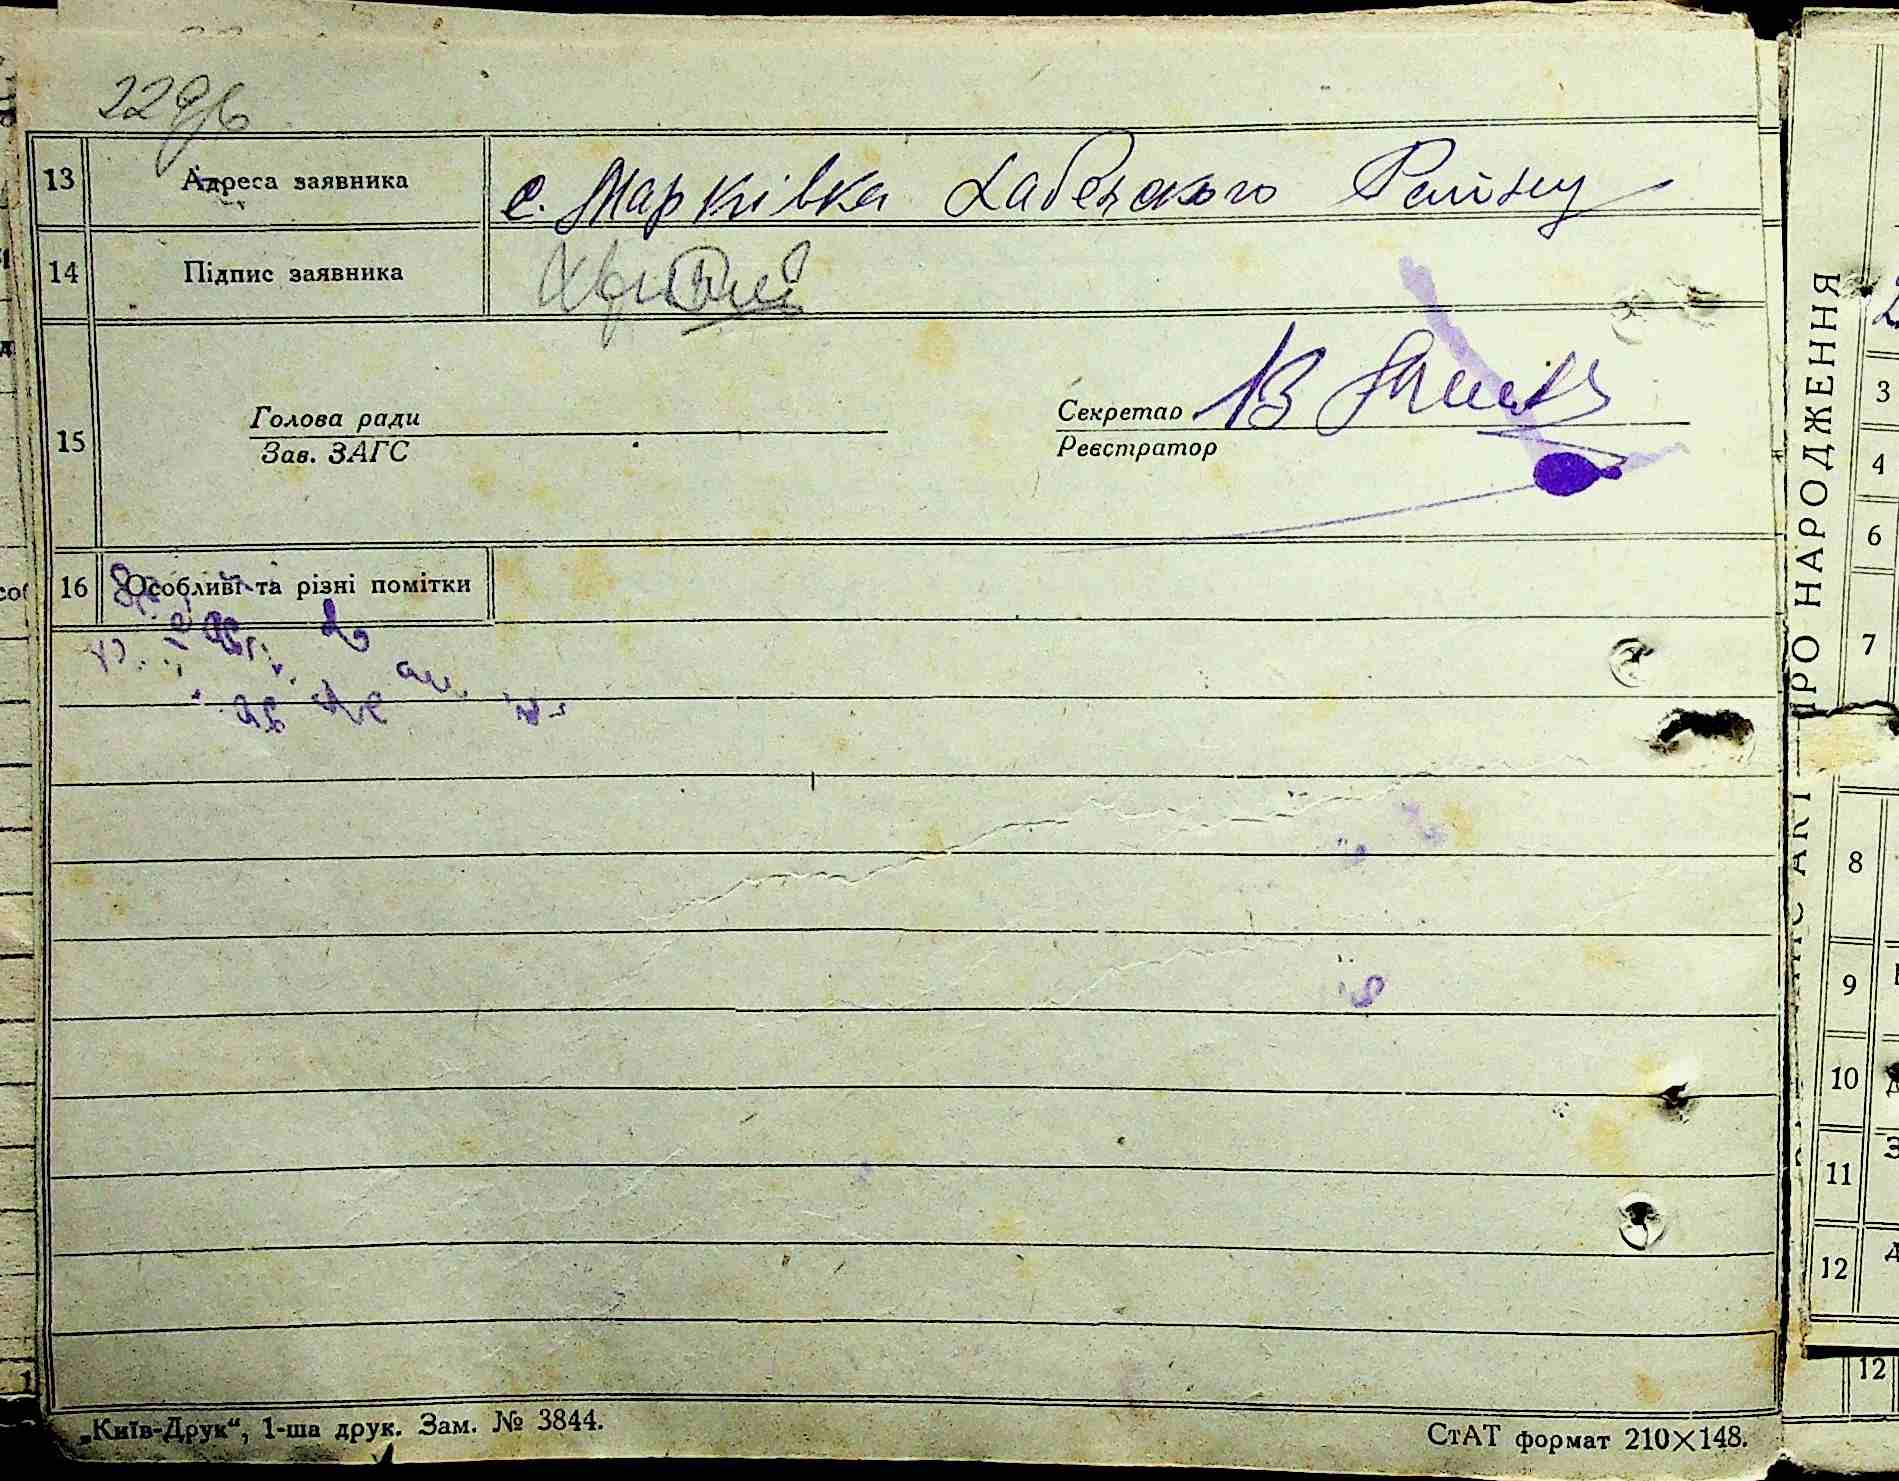 13 Адреса заявника с. Марківка Хабенского Району
14 Підпис заявника
15
Голова ради
Зав. ЗАГС
Секретар
Реєстратор
16 Особливі та різні помітки
„Київ-Друк“, 1-ша друк. Зам. № 3844.
СтАТ формат 210×148.
РО НАРОДЖЕННЯ
АКТ
3
4
6
7
8
9
10
11
12
12